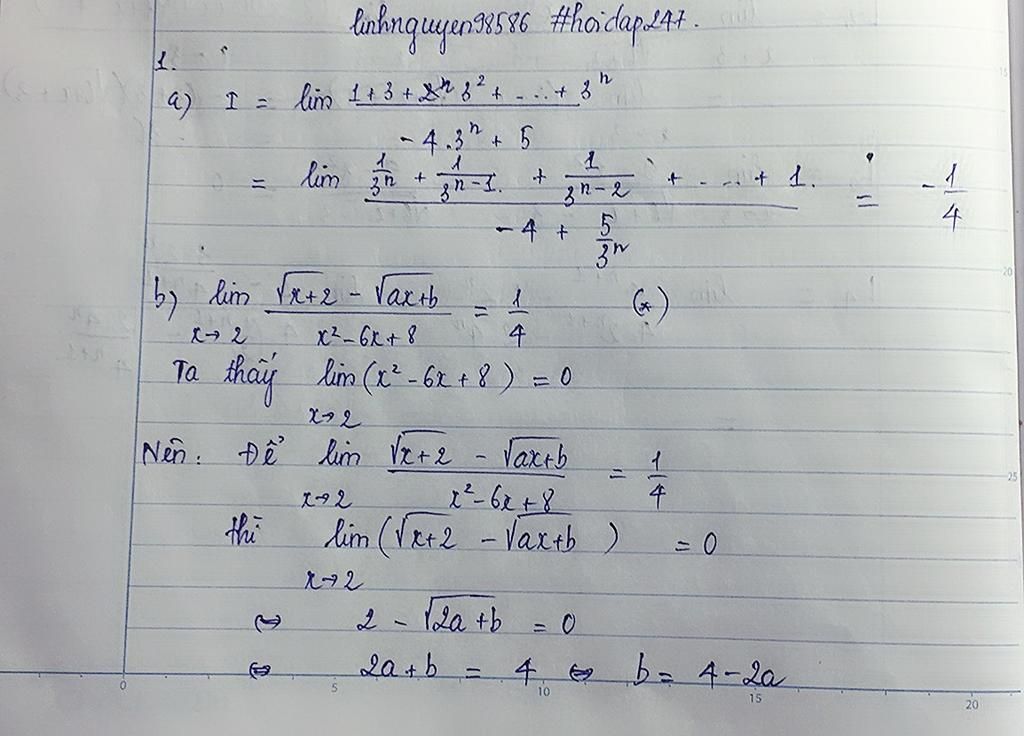 linhnguyen98586 #hoidap247.
1.
a) I = lim (1 + 3 + 3² + ... + 3ⁿ) / (-4.3ⁿ + 5)
= lim (1/3ⁿ + 1/3ⁿ⁻¹ + 1/3ⁿ⁻² + ... + 1) / (-4 + 5/3ⁿ) = -1/4
b) lim x→2 (√(x+2) - √(ax+b)) / (x² - 6x + 8) = 1/4 (*)
Ta thấy lim x→2 (x² - 6x + 8) = 0
Nên: Để lim x→2 (√(x+2) - √(ax+b)) / (x² - 6x + 8) = 1/4
thì lim x→2 (√(x+2) - √(ax+b)) = 0
⇔ 2 - √(2a+b) = 0
⇔ 2a + b = 4 ⇔ b = 4 - 2a
0 5 10 15 20
15
20
25